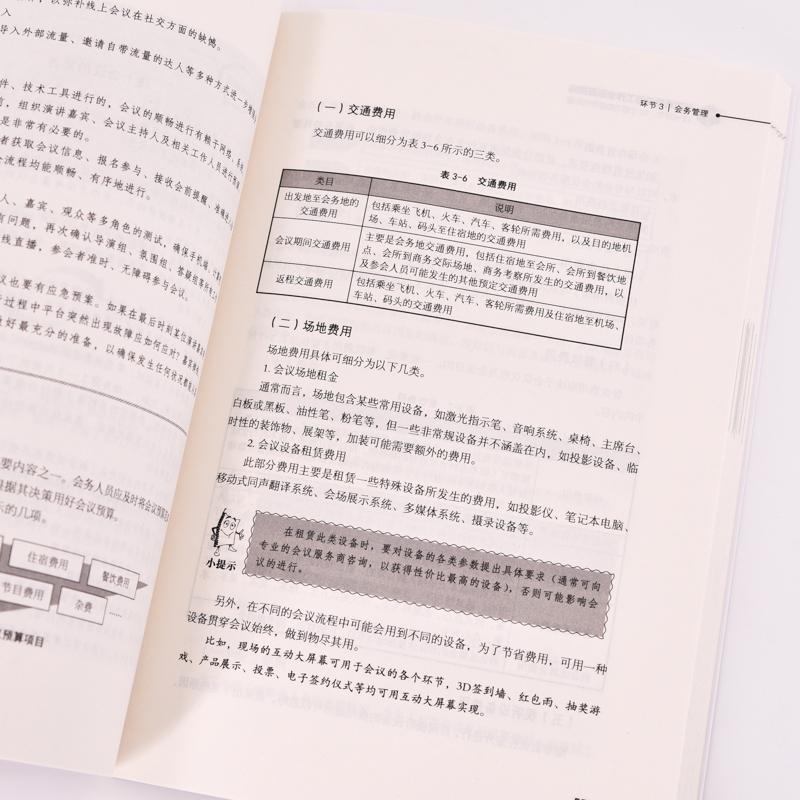 ，以弥补线上会议在社交方面的缺憾。
入
导入外部流量、邀请自带流量的达人等多种方式进一步
件、技术工具进行的，会议的顺畅进行有赖于网络、系统
前，组织演讲嘉宾、会议主持人及相关工作人员进行
是非常有必要的。
者获取会议信息、报名参与、接收会前提醒、准确进入
流程均能顺畅、有序地进行。
人、嘉宾、观众等多角色的测试，确保手机端、
有问题，再次确认导演组、氛围组、答疑组
线直播，参会者准时、无障碍参与会议。
议也要有应急预案。如果在最后时刻某位演讲嘉宾
过程中平台突然出现故障应如何应对？嘉宾
做好最充分的准备，以确保发生任何状况都
要内容之一。会务人员应及时将会议预算
根据其决策用好会议预算。
示的几项。
住宿费用
餐饮费用
节目费用
杂费
……
预算项目
环节3 | 会务管理
（一）交通费用
交通费用可以细分为表3-6所示的三类。
表3-6 交通费用
类目
说明
出发地至会务地的
交通费用
包括乘坐飞机、火车、汽车、客轮所需费用，以及目的地机
场、车站、码头至住宿地的交通费用
会议期间交通费用
主要是会务地交通费用，包括住宿地至会所、会所到餐饮地
点、会所到商务交际场地、商务考察所发生的交通费用，以
及参会人员可能发生的其他预定交通费用
返程交通费用
包括乘坐飞机、火车、汽车、客轮所需费用及住宿地至机场、
车站、码头的交通费用
（二）场地费用
场地费用具体可细分为以下几类。
1. 会议场地租金
通常而言，场地包含某些常用设备，如激光指示笔、音响系统、桌椅、主席台、
白板或黑板、油性笔、粉笔等，但一些非常规设备并不涵盖在内，如投影设备、临
时性的装饰物、展架等，加装可能需要额外的费用。
2. 会议设备租赁费用
此部分费用主要是租赁一些特殊设备所发生的费用，如投影仪、笔记本电脑、
移动式同声翻译系统、会场展示系统、多媒体系统、摄录设备等。
小提示
在租赁此类设备时，要对设备的各类参数提出具体要求（通常可向
专业的会议服务商咨询，以获得性价比最高的设备），否则可能影响会
议的进行。
另外，在不同的会议流程中可能会用到不同的设备，为了节省费用，可用一种
设备贯穿会议始终，做到物尽其用。
比如，现场的互动大屏幕可用于会议的各个环节，3D签到墙、红包雨、抽奖游
戏、产品展示、投票、电子签约仪式等均可用互动大屏幕实现。